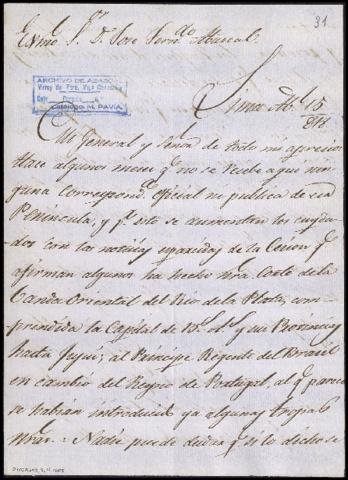 31
Exmo. Sr. Dn. Jose Fern.do Abascal.
ARCHIVO DE ABASCAL
Virrey de
Catálogo M. PAVIA
Lima Ab.l 15
Mi General y Señor de todo mi aprecio:
Hace algunos meses q.e no se recibe aqui nin
guna Correspond.a Oficial ni publica de esa
Peninsula, y p.r esto se aumentan los cuyda
dos con las noticias esparcidas de la Cesion q.e
afirman algunos ha hecho nra. Corte de la
Banda Oriental del Rio de la Plata, com-
prendida la Capital de B.s A.s y sus Provincias
hasta Jujui, al Principe Regente del Brasil
en cambio del Reyno de Portugal, al q.e parece
se habian introducido ya algunas tropas
nras.: Nadie puede dudar q.e si lo dicho se